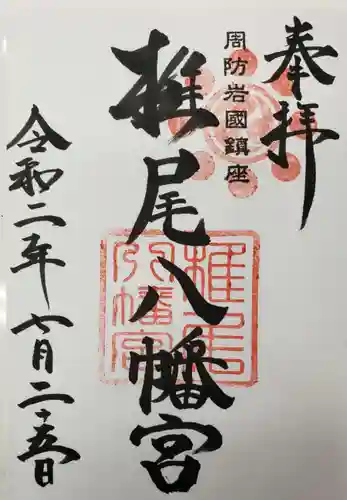 奉拝
周防岩國鎮座
椎尾八幡宮
椎尾八幡宮
令和二年七月二十五日